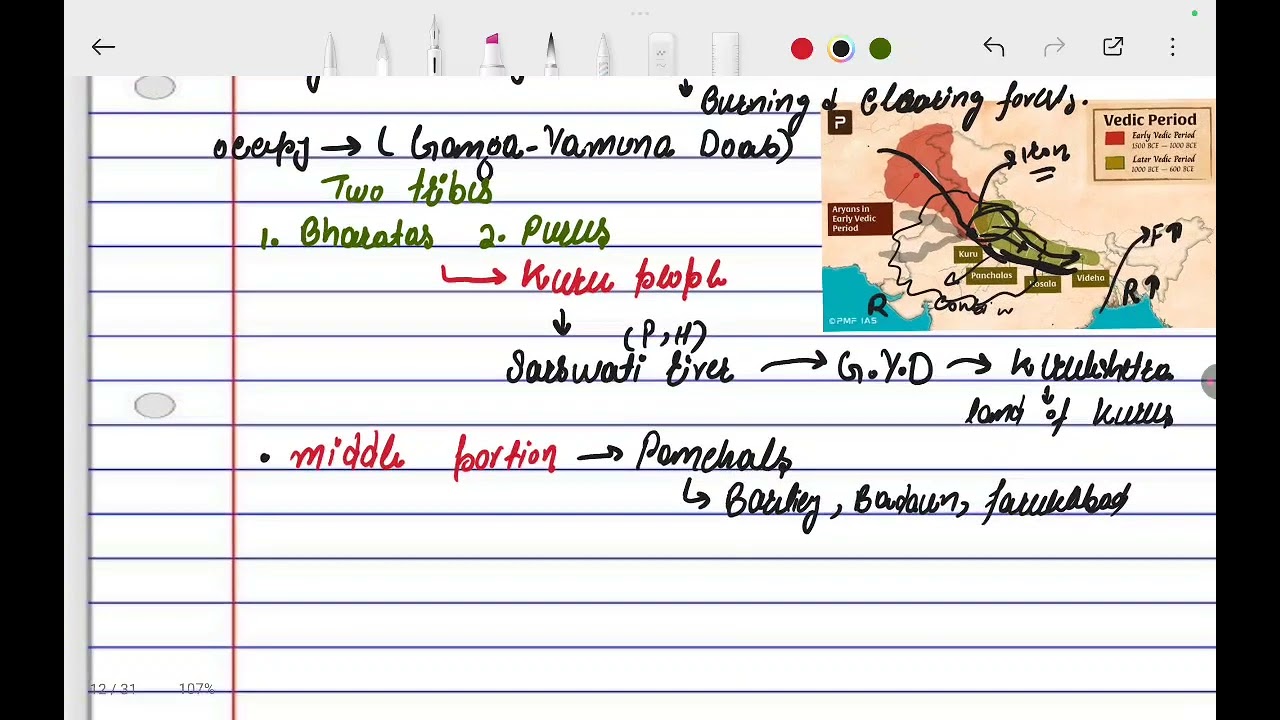 Burning & Clearing forests.
occupy → ( Ganga-Yamuna Doab)
Two tribes
1. Bharatas 2. Purus
Kuru people
(P, H)
Sarswati river → G.Y.D → Kurukshetra
land of Kurus
• middle portion → Panchals
Barliey, Badaun, farukabad
P
Vedic Period
Early Vedic Period
1500 BCE — 1000 BCE
Later Vedic Period
1000 BCE — 600 BCE
Iron
Aryans in
Early Vedic
Period
Kuru
Panchalas
Kosala
Videha
F↑
R↑
R
©PMF IAS
12 / 31 107%